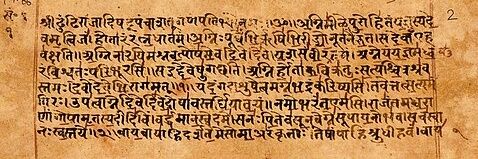 2
॥ॐ॥ अग्निमीळेपुरोहितंयज्ञस्यदे
वमृत्विजं।होतारंरत्नधातमं।अग्निःपूर्वेभिर्ऋषिभिरीड्योनूतनैरुत।सदेवाँएह
वक्षति।अग्निनारयिमश्नवत्पोषमेवदिवेदिवे।यशसंवीरवत्तमं।अग्नेयंयज्ञमध्व
रंविश्वतःपरिभूरसि।सइद्देवेषुगच्छति।अग्निर्होताकविक्रतुःसत्यश्चित्रश्रव
स्तमः।देवोदेवेभिरागमत्॥१॥यदंगदाशुषेत्वमग्नेभद्रंकरिष्यसि।तवेत्तत्सत्यमं
गिरः।उपत्वाग्नेदिवेदिवेदोषावस्तर्धियावयं।नमोभरंतएमसि।राजंतमध्वरा
णांगोपामृतस्यदीदिविं।वर्धमानंस्वेदमे।सनःपितेवसूनवेग्नेसूपायनोभव।सचस्वा
नःस्वस्तये॥२॥वायवायाहिदर्शतेमेसोमाअरंकृताः।तेषांपाहिश्रुधीहवं।वाय